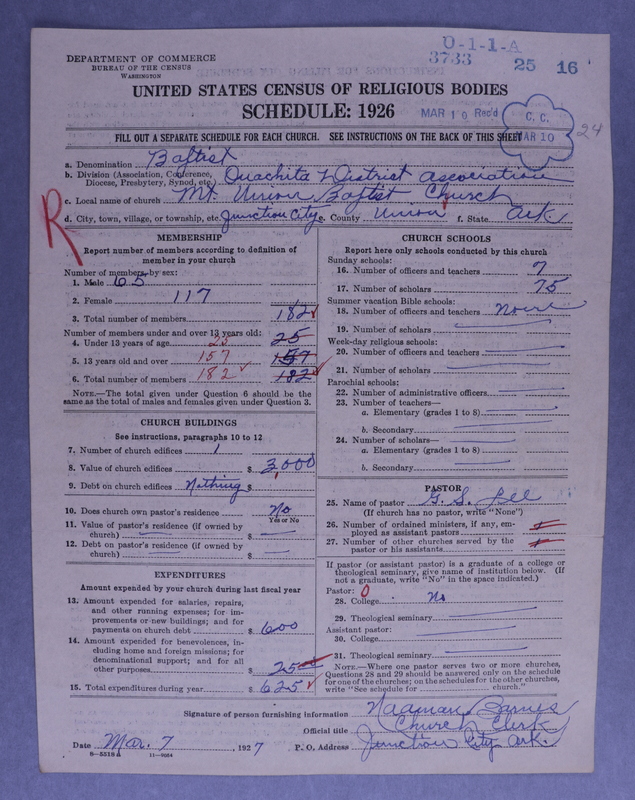 O-1-1-A
3733 25 16
DEPARTMENT OF COMMERCE
BUREAU OF THE CENSUS
WASHINGTON
UNITED STATES CENSUS OF RELIGIOUS BODIES
SCHEDULE: 1926
MAR 10 Rec'd
C. C.
MAR 10
24
FILL OUT A SEPARATE SCHEDULE FOR EACH CHURCH. SEE INSTRUCTIONS ON THE BACK OF THIS SHEET
a. Denomination Baptist
b. Division (Association, Conference, Diocese, Presbytery, Synod, etc. Ouachita District association
c. Local name of church Mt. Union Baptist Church
d. City, town, village, or township, etc. Junction City e. County Union f. State Ark
R
MEMBERSHIP
Report number of members according to definition of
member in your church
Number of members by sex:
1. Male 65
2. Female 117
3. Total number of members 182
Number of members under and over 13 years old:
4. Under 13 years of age 25 25
5. 13 years old and over 157 157
6. Total number of members 182 182
NOTE.—The total given under Question 6 should be the
same as the total of males and females given under Question 3.
CHURCH BUILDINGS
See instructions, paragraphs 10 to 12
7. Number of church edifices 1
8. Value of church edifices $ 3,000
9. Debt on church edifices Nothing $
10. Does church own pastor's residence No
Yes or No
11. Value of pastor's residence (if owned by
church) $
12. Debt on pastor's residence (if owned by
church) $
EXPENDITURES
Amount expended by your church during last fiscal year
13. Amount expended for salaries, repairs,
and other running expenses; for im-
provements or new buildings; and for
payments on church debt $ 600
14. Amount expended for benevolences, in-
cluding home and foreign missions; for
denominational support; and for all
other purposes $ 25
15. Total expenditures during year $ 625
CHURCH SCHOOLS
Report here only schools conducted by this church
Sunday schools:
16. Number of officers and teachers 7
17. Number of scholars 75
Summer vacation Bible schools:
18. Number of officers and teachers None
19. Number of scholars
Week-day religious schools:
20. Number of officers and teachers
21. Number of scholars
Parochial schools:
22. Number of administrative officers
23. Number of teachers—
a. Elementary (grades 1 to 8)
b. Secondary
24. Number of scholars—
a. Elementary (grades 1 to 8)
b. Secondary
PASTOR
25. Name of pastor G. S. Lee
(If church has no pastor, write "None")
26. Number of ordained ministers, if any, em-
ployed as assistant pastors
27. Number of other churches served by the
pastor or his assistants
If pastor (or assistant pastor) is a graduate of a college or
theological seminary, give name of institution below. (If
not a graduate, write "No" in the space indicated.)
Pastor: 0
28. College No
29. Theological seminary
Assistant pastor:
30. College
31. Theological seminary
NOTE.—Where one pastor serves two or more churches,
Questions 28 and 29 should be answered only on the schedule
for one of the churches; on the schedules for the other churches,
write "See schedule for church."
Signature of person furnishing information Naaman Barnes
Official title Church Clerk
Date Mar. 7, 1927 P. O. Address Junction City Ark.
8—5318 A 11—9054